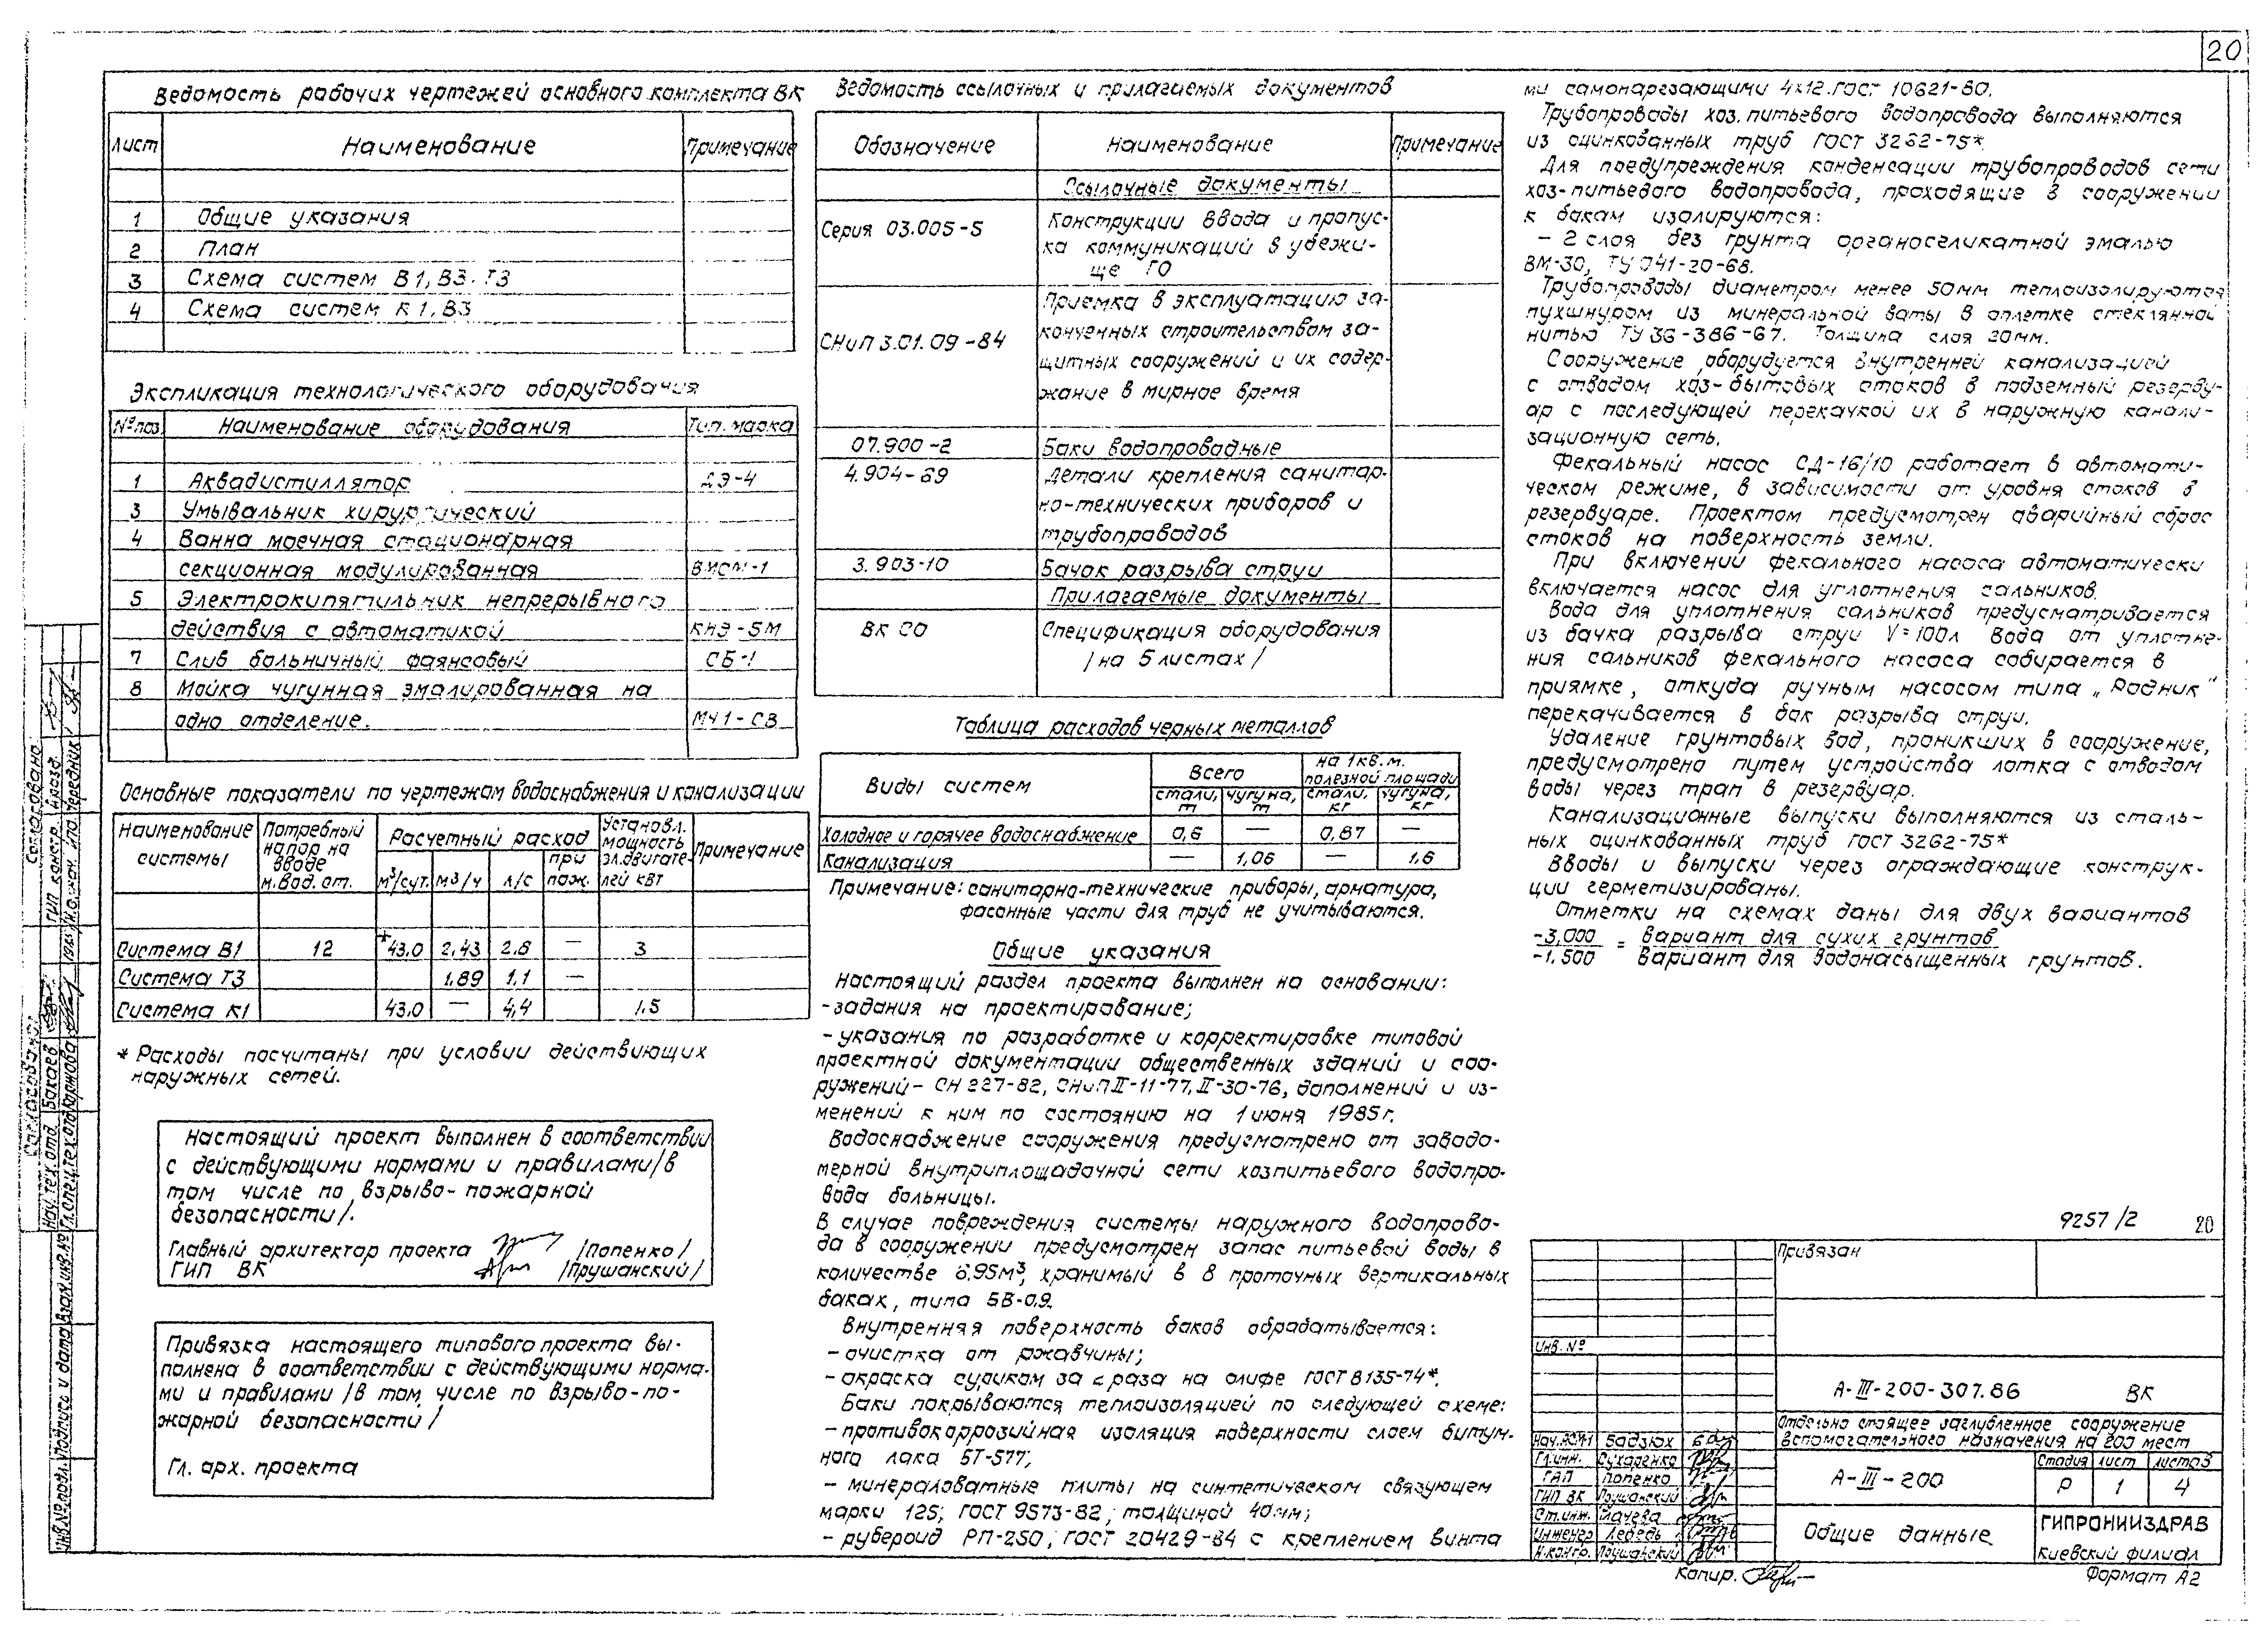 20
Ведомость рабочих чертежей основного комплекта ВК
Лист Наименование Примечание
1 Общие указания
2 План
3 Схема систем В1, В3. Т3
4 Схема систем К1, В3
Экспликация технологического оборудования
№ поз. Наименование оборудования Тип. марка
1 Аквадистиллятор ДЭ-4
3 Умывальник хирургический
4 Ванна моечная стационарная
секционная модулированная ВМСМ-1
5 Электрокипятильник непрерывного
действия с автоматикой КНЭ-5М
7 Слив больничный фаянсовый СБ-1
8 Мойка чугунная эмалированная на
одно отделение. МЧ1-СВ
Основные показатели по чертежам водоснабжения и канализации
Наименование системы Потребный напор на вводе м.вод.ст. Расчетный расход Установл. мощность эл.двигателей кВт Примечание
м³/сут. м3/ч л/с при пож.
Система В1 12 *43,0 2,43 2,6 — 3
Система Т3 1,89 1,1 —
Система К1 43,0 — 4,4 1,5
* Расходы посчитаны при условии действующих
наружных сетей.
Настоящий проект выполнен в соответствии
с действующими нормами и правилами /в
том числе по взрыво-пожарной
безопасности/.
Главный архитектор проекта /Попенко/
ГИП ВК /Прушанский/
Привязка настоящего типового проекта вы-
полнена в соответствии с действующими норма-
ми и правилами /в том числе по взрыво-по-
жарной безопасности/
Гл. арх. проекта
Ведомость ссылочных и прилагаемых документов
Обозначение Наименование Примечание
Ссылочные документы
Серия 03.005-5 Конструкции ввода и пропус-
ка коммуникаций в убежи-
ще ГО
СНиП 3.01.09-84 Приемка в эксплуатацию за-
конченных строительством за-
щитных сооружений и их содер-
жание в мирное время
07.900-2 Баки водопроводные
4.904-69 Детали крепления санитар-
но-технических приборов и
трубопроводов
3.903-10 Бачок разрыва струи
Прилагаемые документы
ВК СО Спецификация оборудования
/на 5 листах/
Таблица расходов черных металлов
Виды систем Всего на 1кв.м. полезной площади
стали, т чугуна, т стали, кг чугуна, кг
Холодное и горячее водоснабжение 0,6 — 0,87 —
Канализация — 1,06 — 1,6
Примечание: санитарно-технические приборы, арматура,
фасонные части для труб не учитываются.
Общие указания
Настоящий раздел проекта выполнен на основании:
-задания на проектирование;
-указания по разработке и корректировке типовой
проектной документации общественных зданий и соо-
ружений- СН 227-82, СНиП II-11-77, II-30-76, дополнений и из-
менений к ним по состоянию на 1 июня 1985г.
Водоснабжение сооружения предусмотрено от заводо-
мерной внутриплощадочной сети хозпитьевого водопро-
вода больницы.
В случае повреждения системы наружного водопрово-
да в сооружении предусмотрен запас питьевой воды в
количестве 6,95м³, хранимый в 8 проточных вертикальных
баках, типа БВ-0,9.
Внутренняя поверхность баков обрабатывается:
-очистка от ржавчины;
-окраска суриком за 2 раза на олифе ГОСТ 8135-74*.
Баки покрываются теплоизоляцией по следующей схеме:
-противокоррозийная изоляция поверхности слоем битум-
ного лака БТ-577;
- минераловатные плиты на синтетическом связующем
марки 125; ГОСТ 9573-82; толщиной 40мм;
- рубероид РП-250; ГОСТ 20429-84 с креплением винта
ми самонарезающими 4x12. ГОСТ 10621-80.
Трубопроводы хоз. питьевого водопровода выполняются
из оцинкованных труб ГОСТ 3262-75*
Для предупреждения конденсации трубопроводов сети
хоз-питьевого водопровода, проходящие в сооружении
к бакам изолируются:
- 2 слоя без грунта органосиликатной эмалью
ВМ-30, ТУ 041-20-68.
Трубопроводы диаметром менее 50мм теплоизолируются
пухшнуром из минеральной ваты в оплетке стеклянной
нитью ТУ 36-386-67. Толщина слоя 20мм.
Сооружение оборудуется внутренней канализацией
с отводом хоз-бытовых стоков в подземный резерву-
ар с последующей перекачкой их в наружную канали-
зационную сеть.
Фекальный насос СД-16/10 работает в автомати-
ческом режиме, в зависимости от уровня стоков в
резервуаре. Проектом предусмотрен аварийный сброс
стоков на поверхность земли.
При включении фекального насоса автоматически
включается насос для уплотнения сальников.
Вода для уплотнения сальников предусматривается
из бачка разрыва струи V=100л Вода от уплотне-
ния сальников фекального насоса собирается в
приямке, откуда ручным насосом типа „Родник"
перекачивается в бак разрыва струи.
Удаление грунтовых вод, проникших в сооружение,
предусмотрено путем устройства лотка с отводом
воды через трап в резервуар.
Канализационные выпуски выполняются из сталь-
ных оцинкованных труб ГОСТ 3262-75*
Вводы и выпуски через ограждающие конструк-
ции герметизированы.
Отметки на схемах даны для двух вариантов
-3,000 = вариант для сухих грунтов
-1,500 вариант для водонасыщенных грунтов.
9257/2 20
Привязан
Инв. №
А-III-200-307.86 ВК
Отдельно стоящее заглубленное сооружение
вспомогательного назначения на 200 мест
Бадзюх
Гл.инж. Сухаренко
ГАП Попенко
ГИП ВК Прушанский
Ст.инж.
Инженер Лебедь
Н.контр. Прушанский
А-III-200
Стадия Лист Листов
Р 1 4
Общие данные
ГИПРОНИИЗДРАВ
Киевский филиал
Копир.
Формат А2
Согласовано:
ГИП констр.
Чередник
Нач.тех.отд. Бакаев
Инв.№ подл. Подпись и дата Взам.инв.№